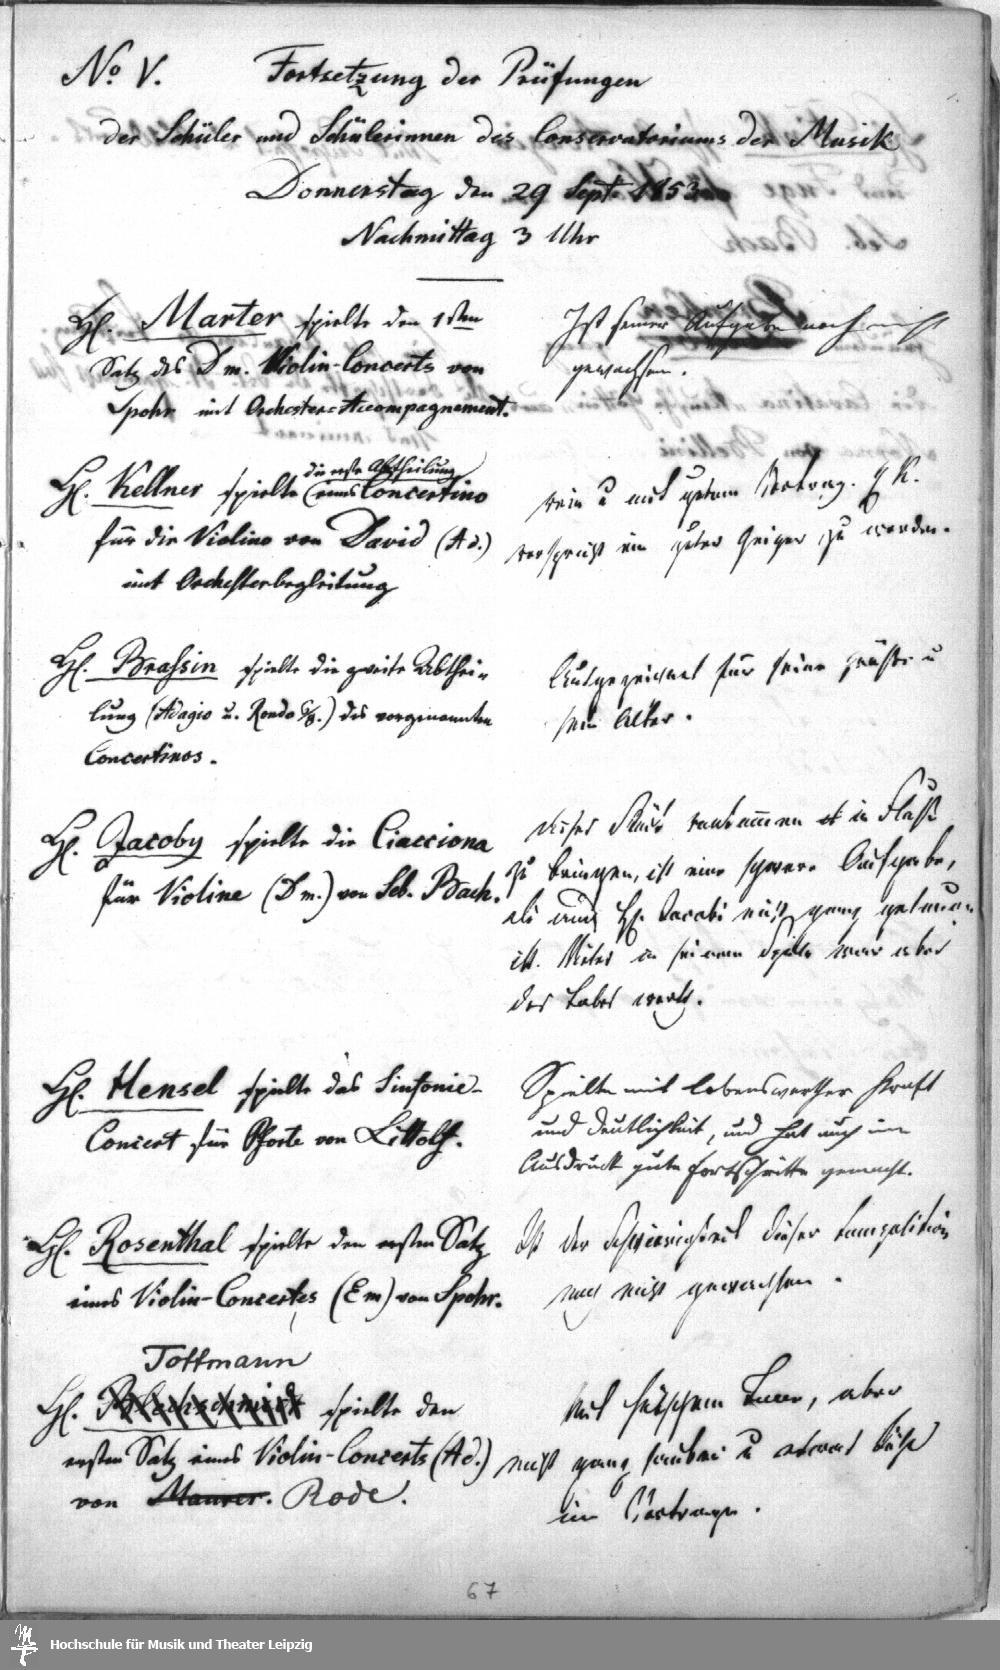 No V. Fortsetzung der Prüfungen
der Schüler und Schülerinnen des Conservatoriums der Musik
Donnerstag den 29 Sept. 1853
Nachmittag 3 Uhr
H. Marter spielte den 1sten
Satz des Dm. Violin-Concerts von
Spohr mit Orchester-Accompagnement.
Ist seiner Aufgabe noch nicht
gewachsen.
die erste Abtheilung
H. Kellner spielte eines Concertino
für die Violine von David (Ad.)
mit Orchesterbegleitung
rein u mit gutem Vortrag. H K.
verspricht ein guter Geiger zu werden.
H. Brassin spielte die zweite Abthei-
lung (Adagio u. Rondo) des vorgenannten
Concertinos.
Ausgezeichnet für seine Kräfte u
sein Alter.
H. Jacoby spielte die Ciacciona
für Violine (Dm.) von Seb. Bach.
dieses Stück in Fluß
zu bringen, ist eine schwere Aufgabe,
die auch H. Jacobi nicht ganz gelungen
ist. Vieles in seinem Spiele war aber
des Lobes werth.
H. Hensel spielte das Sinfonie-
Concert für Pforte von Littolf.
Spielte mit lobenswerther Kraft
und Deutlichkeit, und hat auch im
Ausdruck gute Fortschritte gemacht.
H. Rosenthal spielte den ersten Satz
eines Violin-Concertes (Em) von Spohr.
Ist der Schwierigkeit dieser Composition
noch nicht gewachsen.
Tottmann
H. Blechschmidt spielte den
ersten Satz eines Violin-Concerts (Ad.)
von Maurer. Rode.
Mit hübschem Tone, aber
nicht ganz sauber u etwas
im Vortrage.
67
Hochschule für Musik und Theater Leipzig